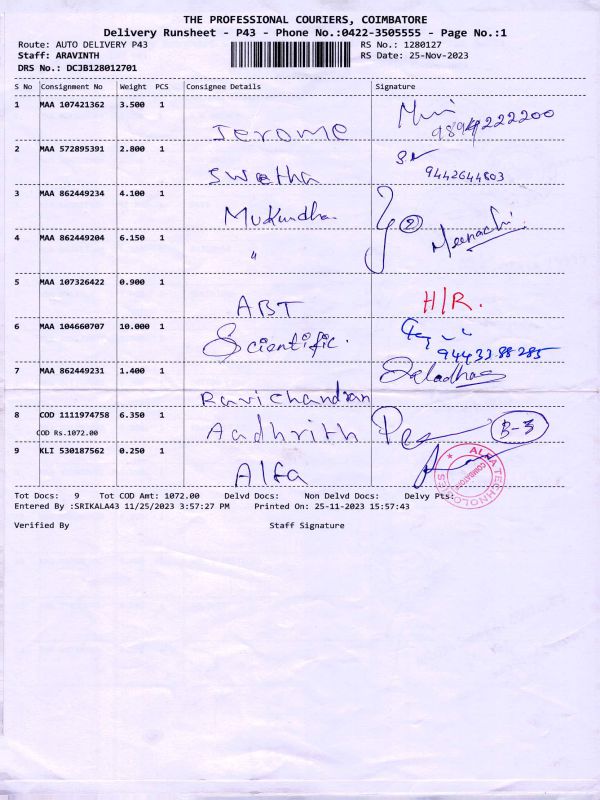 THE PROFESSIONAL COURIERS, COIMBATORE
Delivery Runsheet - P43 - Phone No.:0422-3505555 - Page No.:1
Route: AUTO DELIVERY P43 RS No.: 1280127
Staff: ARAVINTH RS Date: 25-Nov-2023
DRS No.: DCJB128012701
S No Consignment No Weight PCS Consignee Details Signature
1 MAA 107421362 3.500 1
Jerome
2 MAA 572895391 2.800 1
Swetha 9442644803
3 MAA 862449234 4.100 1
Mukundha 2
4 MAA 862449204 6.150 1 Meenachi
"
5 MAA 107326422 0.900 1
ABT H/R.
6 MAA 104660707 10.000 1
Scientific.
7 MAA 862449231 1.400 1
Ravichandran
8 COD 1111974758 6.350 1
COD Rs.1072.00 Aadhrith B-3
9 KLI 530187562 0.250 1
Alfa
Tot Docs: 9 Tot COD Amt: 1072.00 Delvd Docs: Non Delvd Docs: Delvy Pts:
Entered By :SRIKALA43 11/25/2023 3:57:27 PM Printed On: 25-11-2023 15:57:43
Verified By Staff Signature